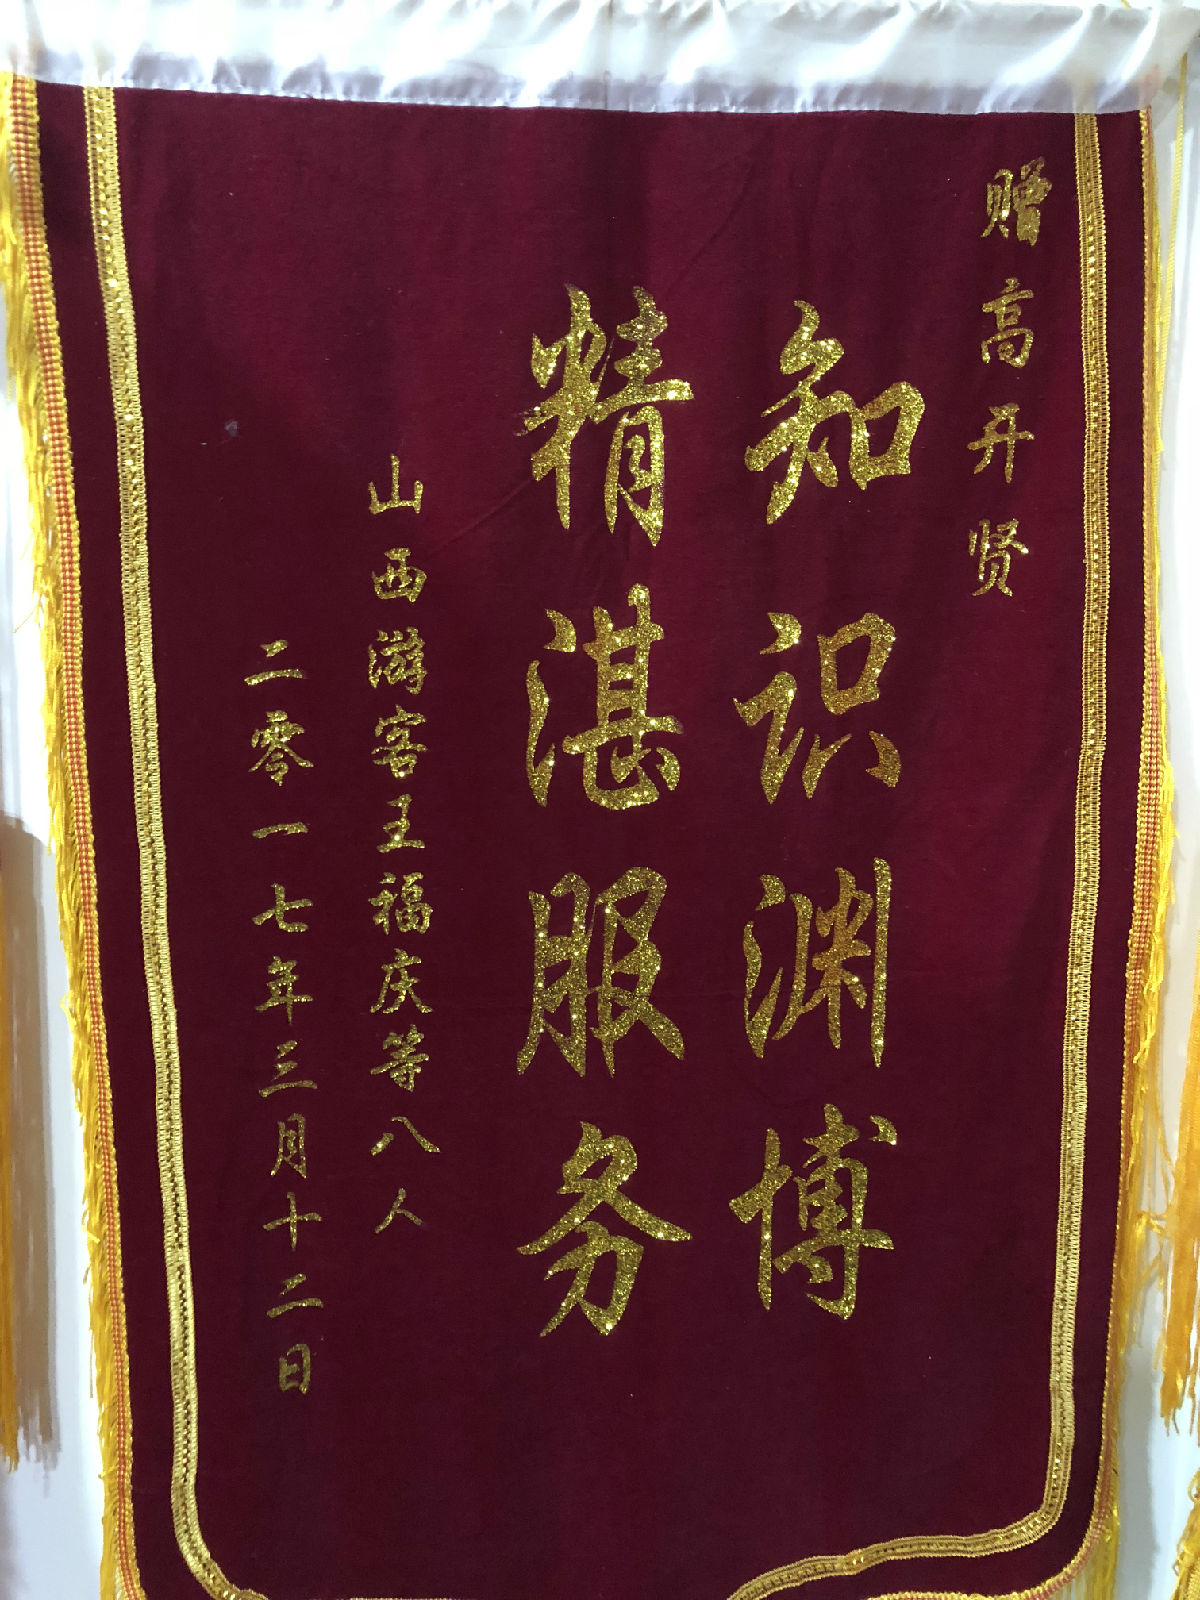 赠高开贤
知识渊博
精湛服务
山西游客王福庆等八人
二零一七年三月十二日